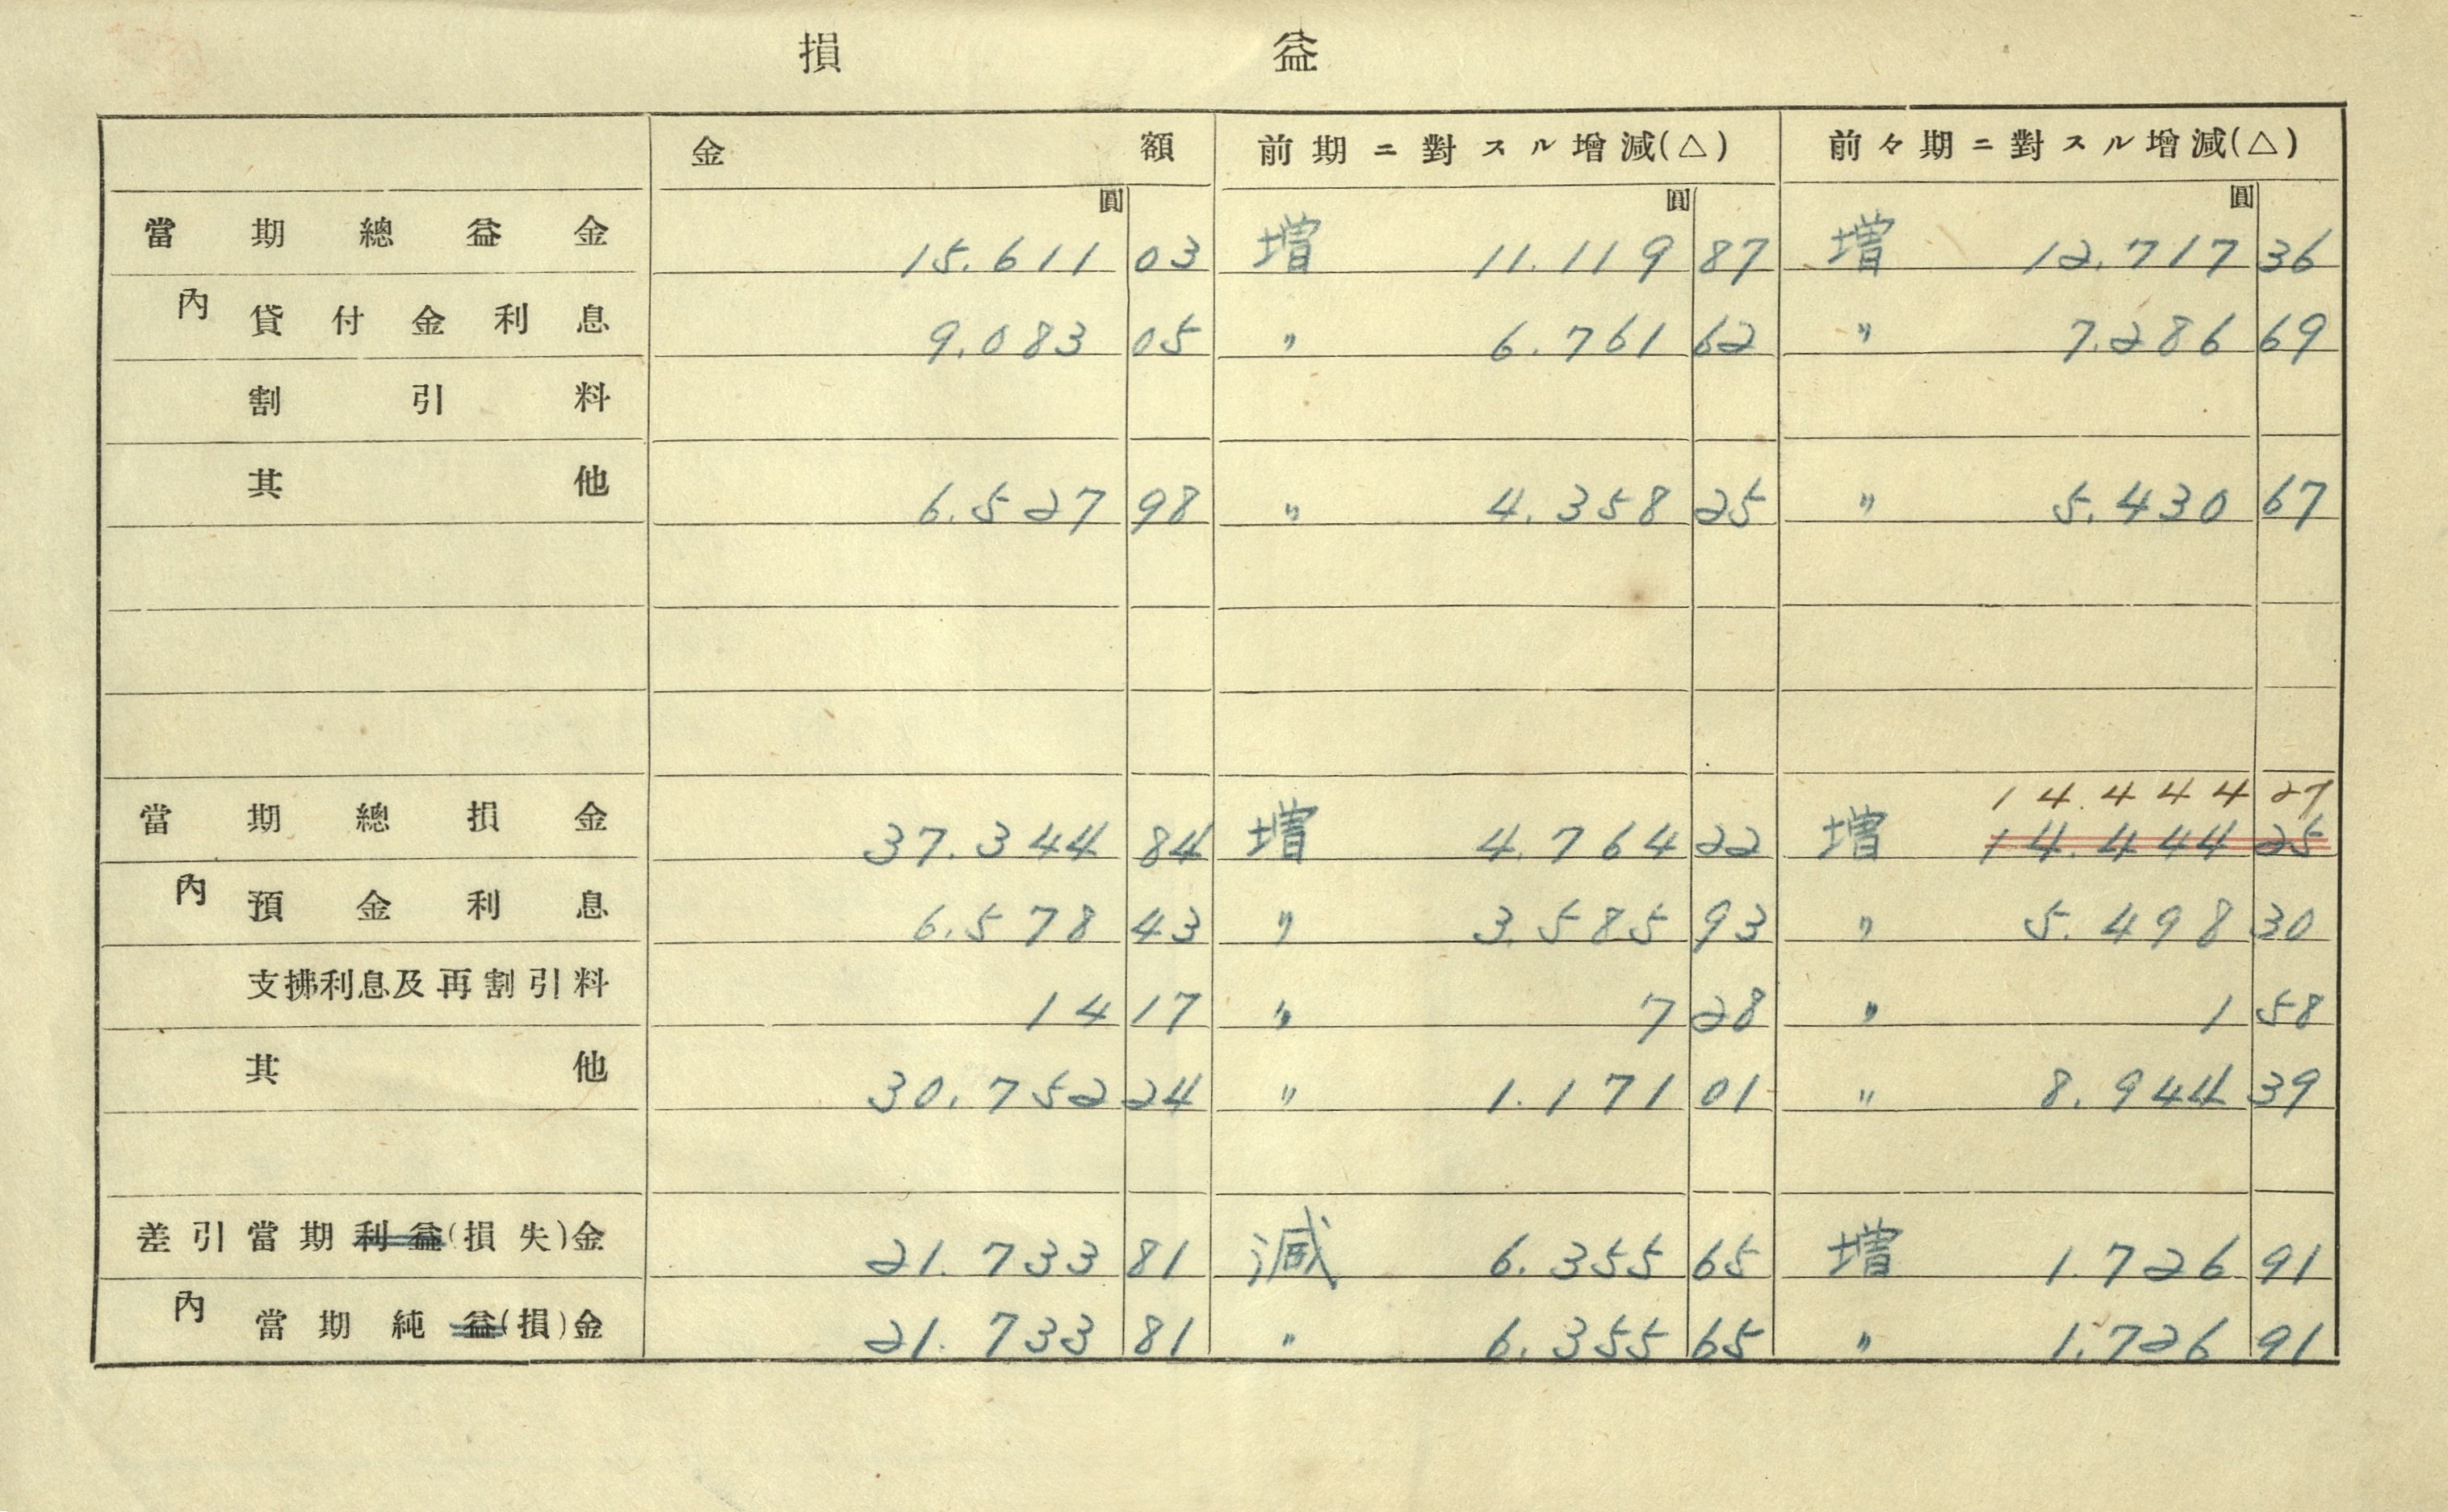 損益
金額 前期ニ對スル增減(△) 前々期ニ對スル增減(△)
圓 圓 圓
當期總益金 15.611 03 増 11.119 87 増 12.717 36
內 貸付金利息 9.083 05 〃 6.761 62 〃 7.286 69
割引料
其他 6.527 98 〃 4.358 25 〃 5.430 67
14.444 27
當期總損金 37.344 84 増 4.764 22 増 14.444 25
內 預金利息 6.578 43 〃 3.585 93 〃 5.498 30
支拂利息及再割引料 14 17 〃 7 28 〃 1 58
其他 30.752 24 〃 1.171 01 〃 8.944 39
差引當期利益(損失)金 21.733 81 減 6.355 65 増 1.726 91
內 當期純益(損)金 21.733 81 〃 6.355 65 〃 1.726 91